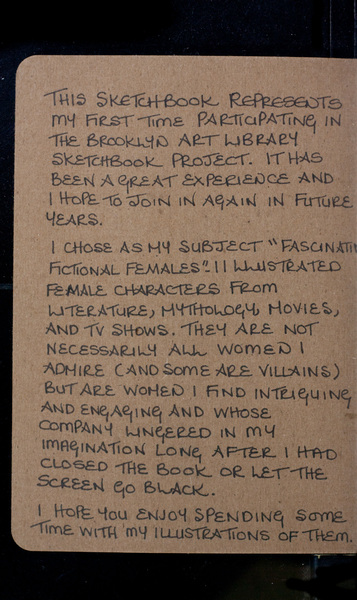 THIS SKETCHBOOK REPRESENTS
MY FIRST TIME PARTICIPATING IN
THE BROOKLYN ART LIBRARY
SKETCHBOOK PROJECT. IT HAS
BEEN A GREAT EXPERIENCE AND
I HOPE TO JOIN IN AGAIN IN FUTURE
YEARS.
I CHOSE AS MY SUBJECT "FASCINATIN
FICTIONAL FEMALES". I ILLUSTRATED
FEMALE CHARACTERS FROM
LITERATURE, MYTHOLOGY, MOVIES,
AND TV SHOWS. THEY ARE NOT
NECESSARILY ALL WOMEN I
ADMIRE (AND SOME ARE VILLAINS)
BUT ARE WOMEN I FIND INTRIGUING
AND ENGAGING AND WHOSE
COMPANY LINGERED IN MY
IMAGINATION LONG AFTER I HAD
CLOSED THE BOOK OR LET THE
SCREEN GO BLACK.
I HOPE YOU ENJOY SPENDING SOME
TIME WITH MY ILLUSTRATIONS OF THEM.